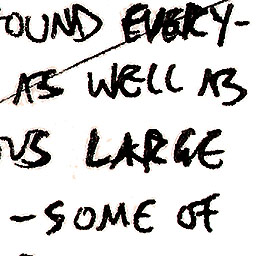 OUND EVERY-
AS WELL AS
US LARGE
- SOME OF